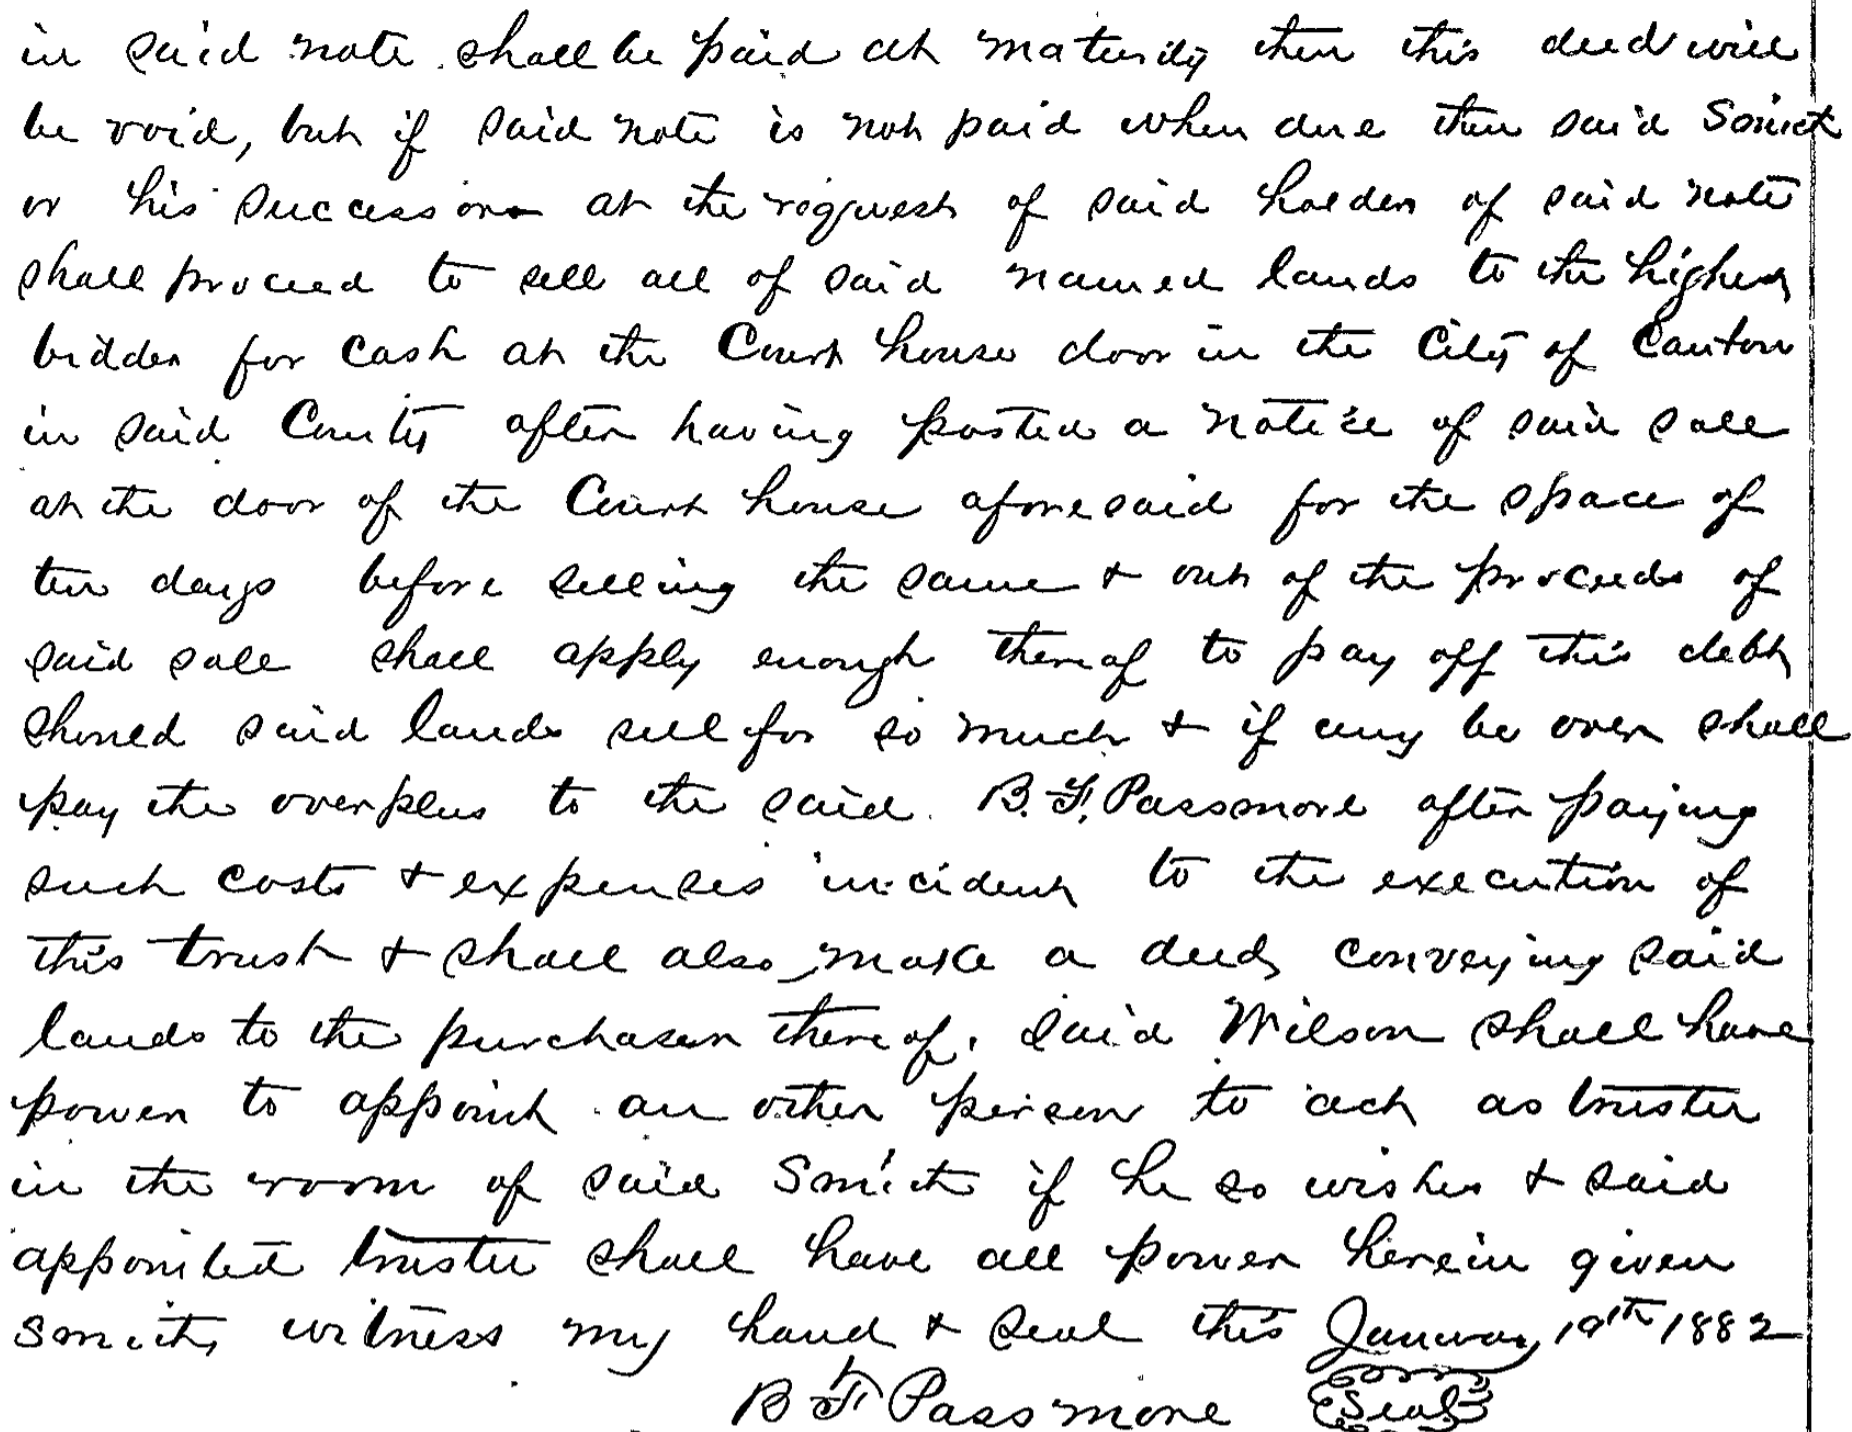 in said note shall be paid at maturity then this deed will
be void, but if said note is not paid when due then said Smith
or his successor at the request of said holder of said note
shall proceed to sell all of said named lands to the highest
bidder for cash at the Court house door in the City of Canton
in said County after having posted a notice of said sale
at the door of the Court house aforesaid for the space of
ten days before selling the same & out of the proceeds of
said sale shall apply enough thereof to pay off this debt
should said lands sell for so much & if any be over shall
pay the overplus to the said B. F. Passmore after paying
such costs & expenses incident to the execution of
this trust & shall also make a deed conveying said
lands to the purchaser thereof. Said Wilson shall have
power to appoint an other person to act as trustee
in the room of said Smith if he so wishes & said
appointed trustee shall have all power herein given
Smith, witness my hand & seal this January 19th 1882
B F Passmore Seal